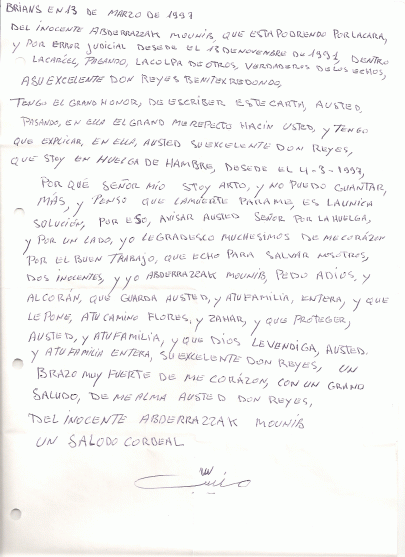 BRIANS EN 13 DE MARZO DE 1997
DEL INOCENTE ABDERRAZZAK MOUNIB, QUE ESTA PODRENDO POR LA CARA,
Y POR ERROR JUDICIAL DESEDE EL 13 DE NOVEMBRE DE 1991, DENTRO
LACARCEL, PAGANDO, LACOLPA DE OTROS, VERDADEROS DE LOS ECHOS,
A SU EXCELENTE DON REYES BENITEX REDONDO,
TENGO EL GRAND HONOR, DE ESCRIBER ESTE CARTA, AUSTED,
PASANDO, EN ELLA EL GRAND ME REPECTO HACIN USTED, Y TENGO
QUE EXPLICAR, EN ELLA, AUSTED SU EXCELENTE DON REYES,
QUE STOY EN HUELGA DE HAMBRE, DESEDE EL 4-3-1997,
POR QUÉ SEÑOR MIO STOY ARTO, Y NO PUEDO GUANTAR,
MÁS, Y PENSO QUE LAMUERTE PARAME, ES LAUNICA
SOLUCIÓN, POR ESO, AVISAR AUSTED SEÑOR POR LA HUELGA,
Y POR UN LADO, YO LE GRADESCO MUCHESIMOS DE ME CORÁZON
POR EL BUEN TRABAJO, QUE ECHO PARA SALVAR NOSOTROS,
DOS INOCENTES, Y YO ABDERRAZZAK MOUNIB, PEDO ADIOS, Y
ALCORÁN, QUE GUARDA AUSTED, Y ATU FAMILIA, ENTERA, Y QUE
LE PONE, ATU CAMINO FLORES, Y ZAHAR, Y QUE PROTEGER,
AUSTED, Y ATU FAMILIA, Y QUE DIOS LE VENDIGA, AUSTED.
Y ATU FAMILIA ENTERA, SU EXCELENTE DON REYES, UN
BRAZO MUY FUERTE DE ME CORÁZON, CON UN GRAND
SALUDO, DE ME ALMA AUSTED DON REYES,
DEL INOCENTE ABDERRAZZAK MOUNIB
UN SALODO CORDEAL